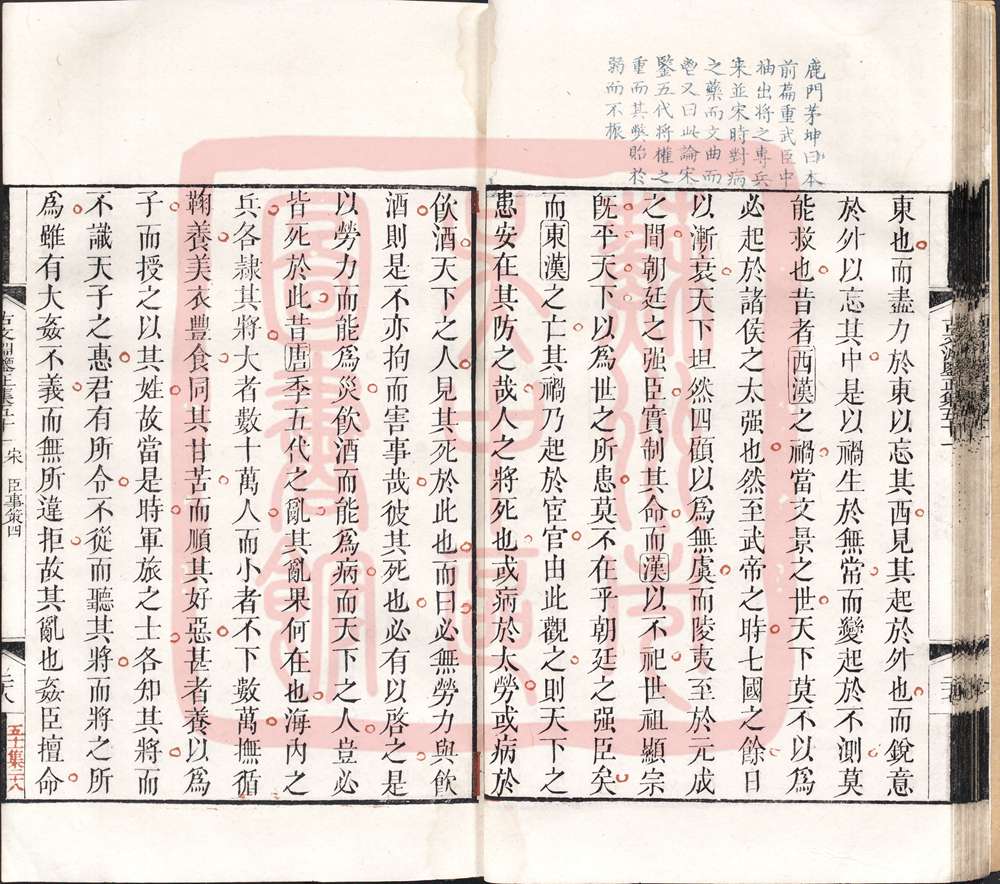 鹿門茅坤曰本
前篇重武臣中
抽出將之專兵
來並宋時對病
之藥而文曲而
鬯又曰此論宋
鑒五代將權之
重而其弊貽於
弱而不振
東也而盡力於東以忘其西見其起於外也而銳意
於外以忘其中是以禍生於無常而變起於不測莫
能救也昔者西漢之禍當文景之世天下莫不以爲
必起於諸侯之太强也然至武帝之時七國之餘日
以漸衰天下坦然四顧以爲無虞而陵夷至於元成
之間朝廷之强臣實制其命而漢以不祀世祖顯宗
旣平天下以爲世之所患莫不在乎朝廷之强臣矣
而東漢之亡其禍乃起於宦官由此觀之則天下之
患安在其防之哉人之將死也或病於太勞或病於
飮酒天下之人見其死於此也而曰必無勞力與飮
酒則是不亦拘而害事哉彼其死也必有以啓之是
以勞力而能爲災飮酒而能爲病而天下之人豈必
皆死於此昔唐季五代之亂其亂果何在也海內之
兵各隸其將大者數十萬人而小者不下數萬撫循
鞠養美衣豐食同其甘苦而順其好惡甚者養以爲
子而授之以其姓故當是時軍旅之士各知其將而
不識天子之惠君有所令不從而聽其將而將之所
爲雖有大姦不義而無所違拒故其亂也姦臣擅命
宋 臣事策四